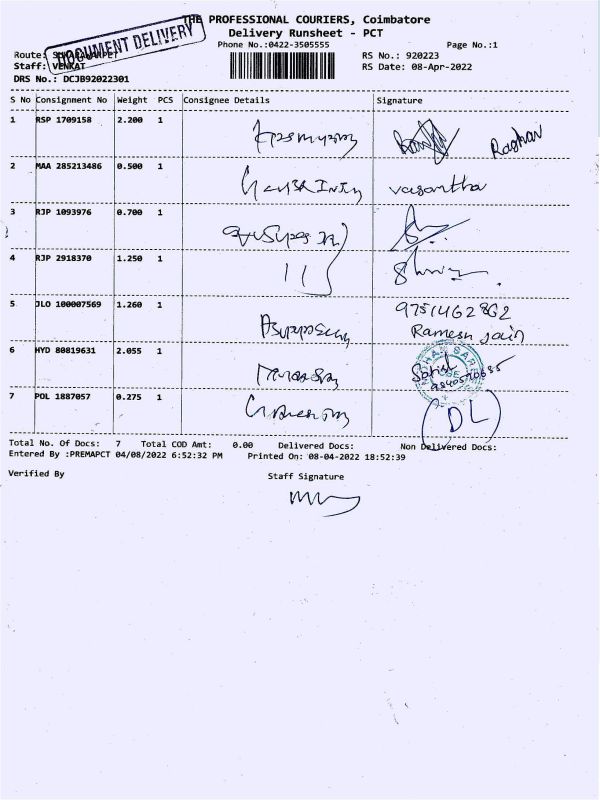 THE PROFESSIONAL COURIERS, Coimbatore
DOCUMENT DELIVERY
Delivery Runsheet - PCT
Phone No.:0422-3505555
Page No.:1
Route:
RS No.: 920223
Staff: VENKAT
RS Date: 08-Apr-2022
DRS No.: DCJB92022301
S No Consignment No Weight PCS Consignee Details Signature
1 RSP 1709158 2.200 1 Raghav
2 MAA 285213486 0.500 1 vasantha
3 RJP 1093976 0.700 1
4 RJP 2918370 1.250 1
5 JLO 100007569 1.260 1 9751462862
Ramesh Jain
6 HYD 80819631 2.055 1 Satish
7 POL 1887057 0.275 1 DL
Total No. Of Docs: 7 Total COD Amt: 0.00 Delivered Docs: Non Delivered Docs:
Entered By :PREMAPCT 04/08/2022 6:52:32 PM Printed On: 08-04-2022 18:52:39
Verified By Staff Signature